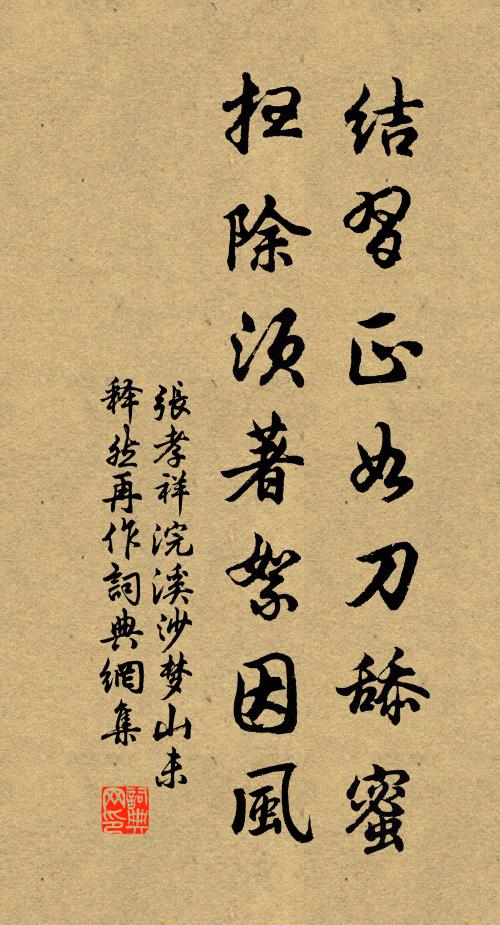 结習正如刀舔蜜
扫除須著絮因風
張孝祥浣溪沙梦山未
释然再作詞典網集
詞典
网印